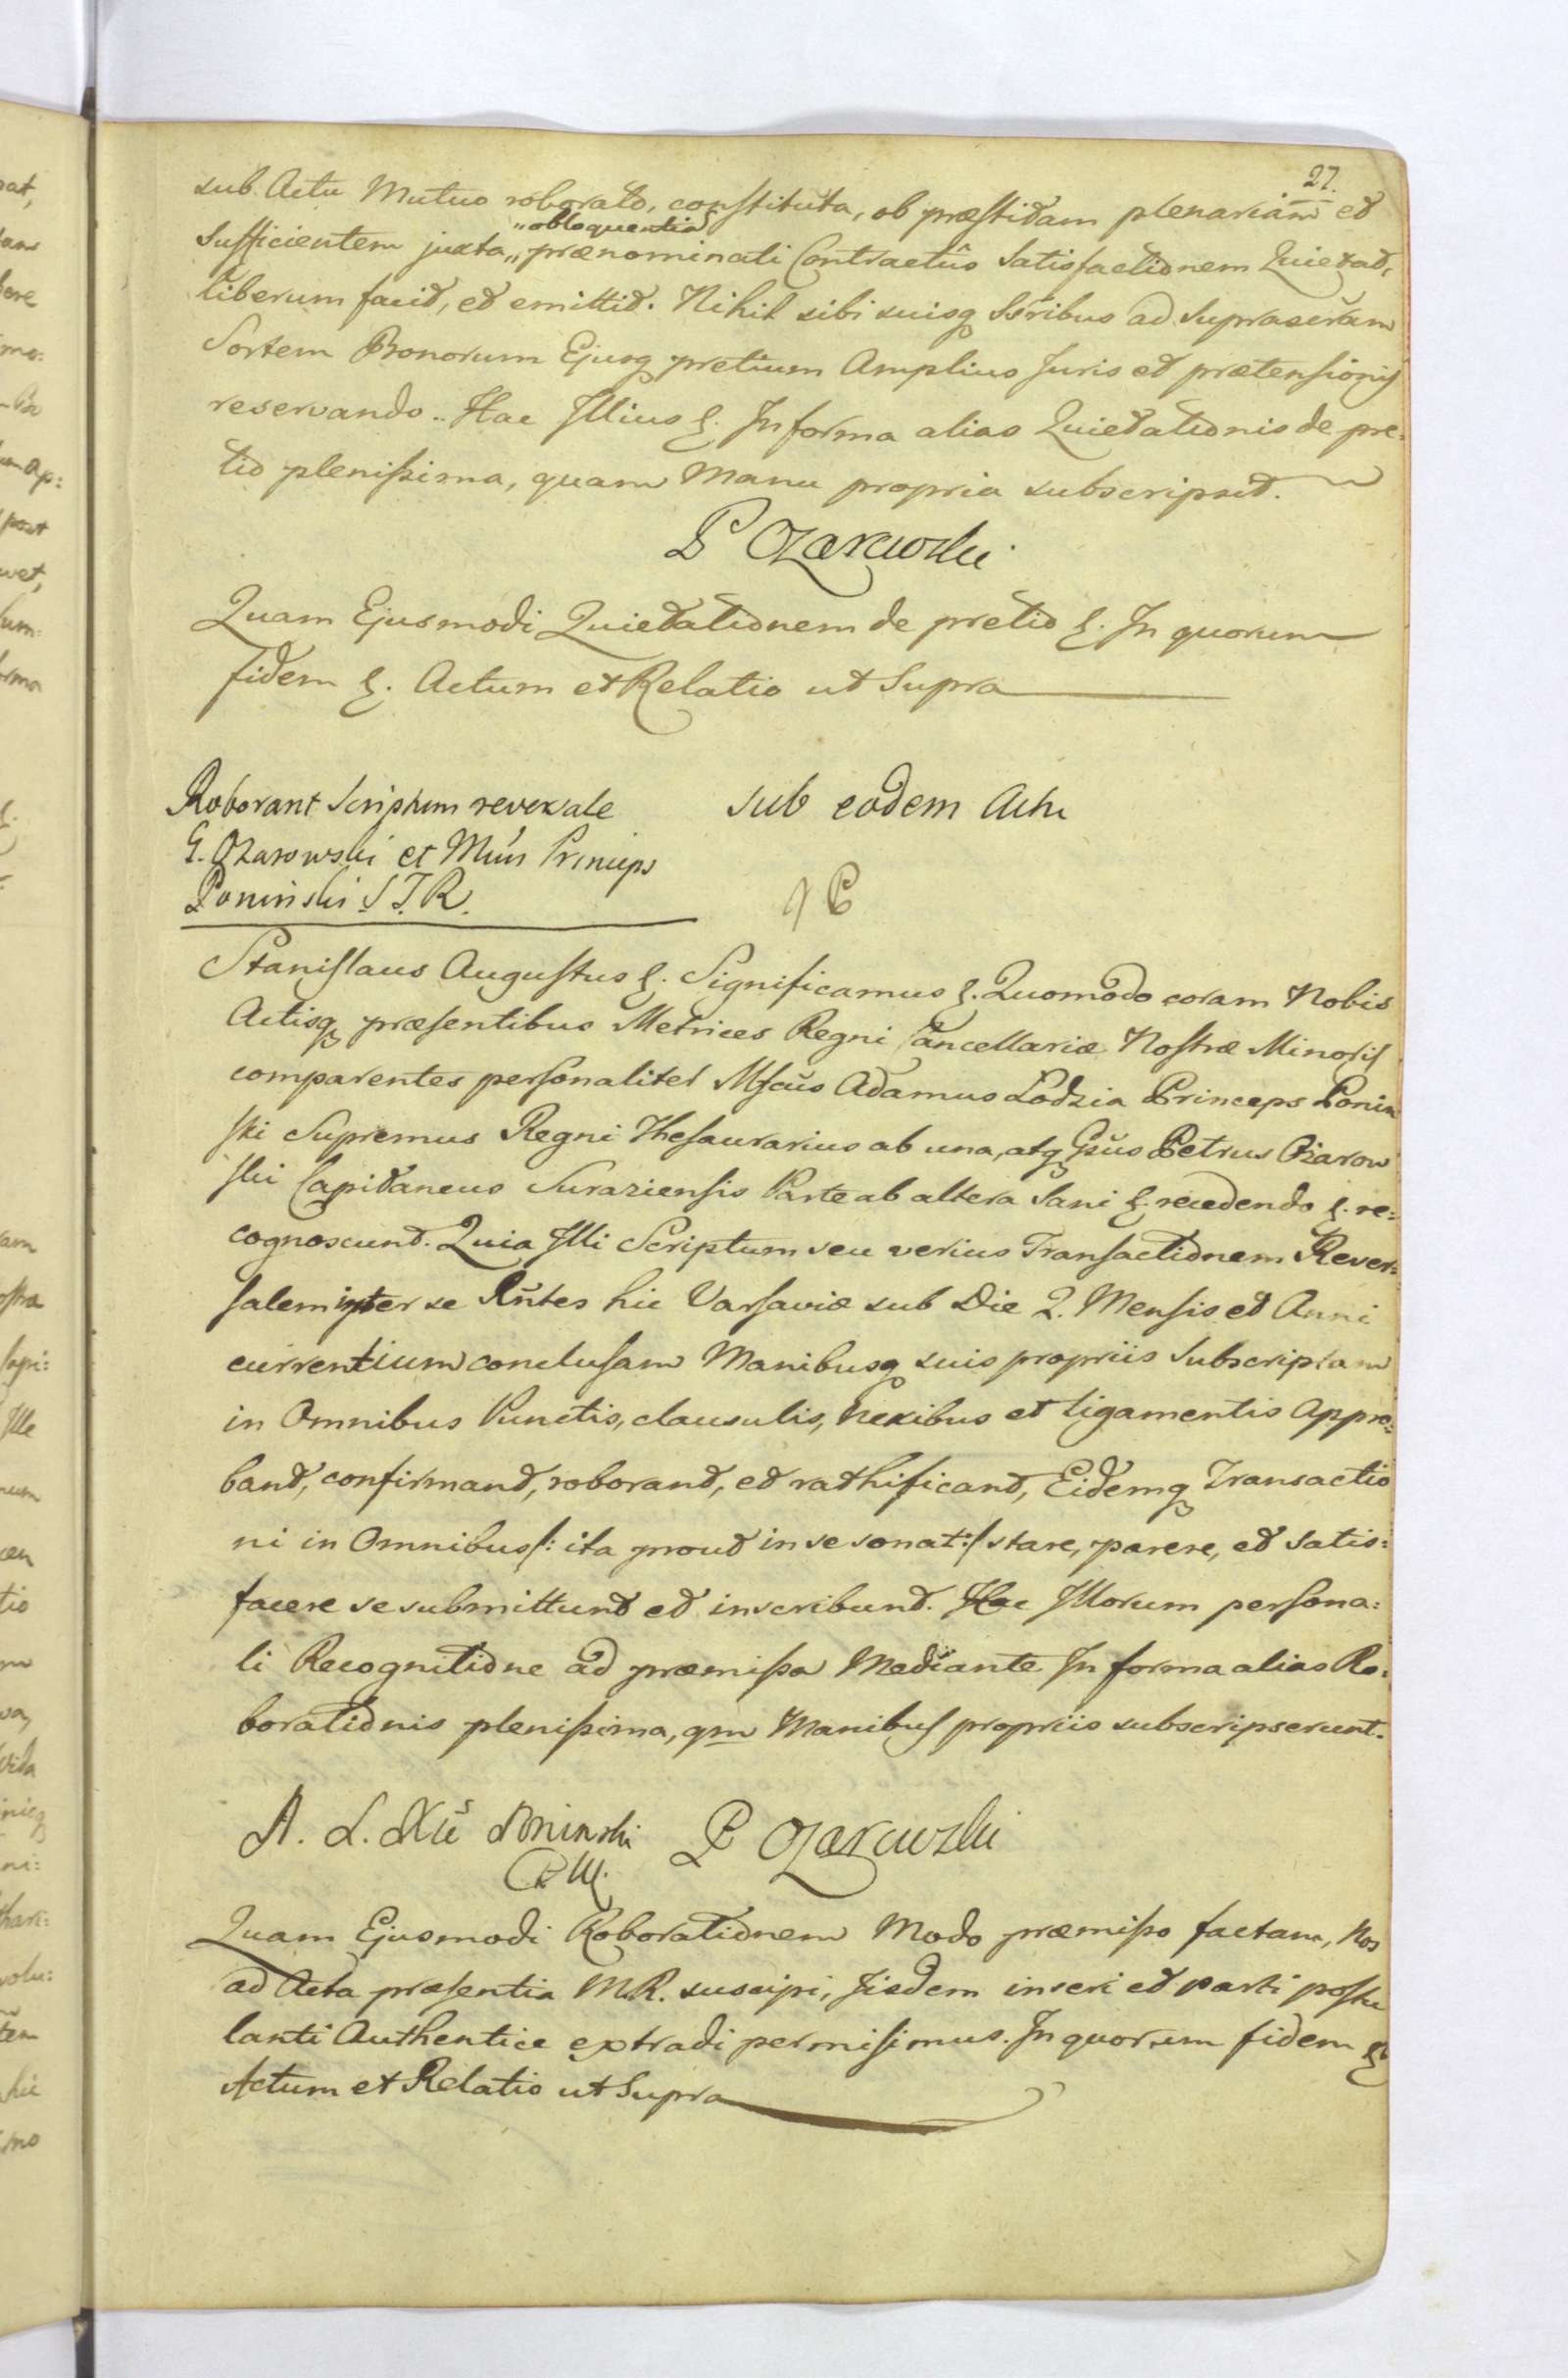 27.
sub Actu Mutuo roborato, constituta, ob præstitam plenariam et
„obloquentia
Sufficientem juxta„ prænominati Contractûs Satisfactionem Quietat,
liberum facit, et emittit. Nihil sibi suisq Ssribus ad Suprascram
Sortem Bonorum Ejusq pretium Amplius Juris et prætensionis
reservando.. Hac Illius &. In forma alias Quietationis de pre:
tio plenissima, quam Manu propria subscripsit.
P Ożarowski
Quam Ejusmodi Quietationem de pretio &. In quorum
fidem &. Actum et Relatio ut Supra
Roborant Scriptum reversale
G. Ożarowski et Mfcus Princeps
Poninski S.T.R.
sub eodem Actu
Stanislaus Augustus &. Significamus &. Quomodo coram Nobis
Actisq præsentibus Metrices Regni Cancellariæ Nostræ Minoris
comparentes personaliter Mfcus Adamus Lodzia Princeps Ponin
ski Supremus Regni Thesaurarius ab una, atq Gsus Petrus Ożarow
ski Capitaneus Suraziensis Parte ab altera Sani &. recedendo &. re:
cognoscunt. Quia Illi Scriptum seu verius Transactionem Rever:
salem inter se Rntes hic Varsaviæ sub Die 2. Mensis et Anni
currentium conclusam Manibusq suis propriis Subscriptam
in Omnibus Punctis, clausulis, Nexibus et ligamentis Appro:
bant, confirmant, roborant, et rathificant, Eidemq Transactio
ni in Omnibus /: ita prout in se sonat :/ stare, parere, et Satis:
facere se submittunt et inscribunt. Hac Illorum persona:
li Recognitione ad præmissa Mediante In forma alias Ro:
borationis plenissima, qm Manibus propriis subscripserunt.
A. Ł. Xże Poninski
P Ożarowski
Quam Ejusmodi Roborationem Modo præmisso factam, Nos
ad Acta præsentia M.R. suscipi, Iisdem inseri et parti postu
lanti Authentice extradi permisimus. In quorum fidem &
Actum et Relatio ut Supra